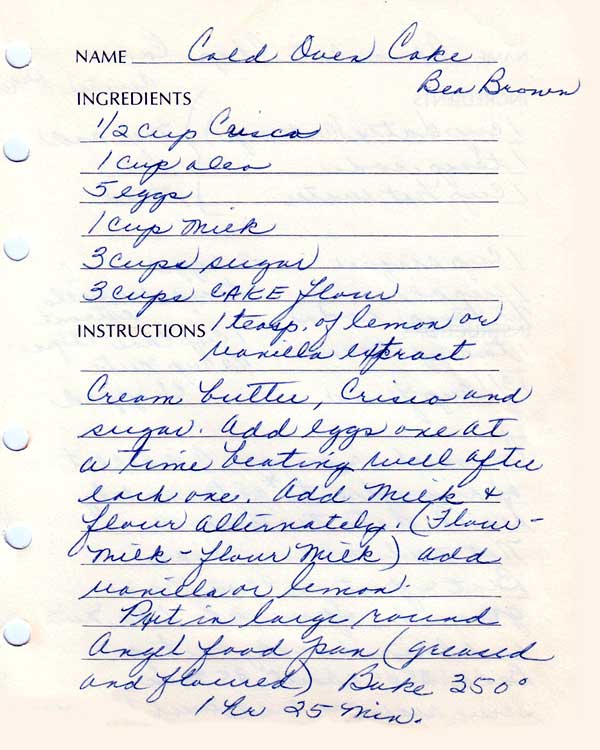 NAME Cold Oven Cake
Bea Brown
INGREDIENTS
1/2 cup Crisco
1 cup oleo
5 eggs
1 cup milk
3 cups sugar
3 cups CAKE flour
INSTRUCTIONS 1 teasp. of lemon or
vanilla extract
Cream butter, Crisco and
sugar. Add eggs one at
a time beating well after
each one. Add Milk &
flour alternately. (Flour-
milk-flour Milk) add
vanilla or lemon.
Put in large round
Angel food pan (greased
and floured) Bake 350°
1 hr 25 min.